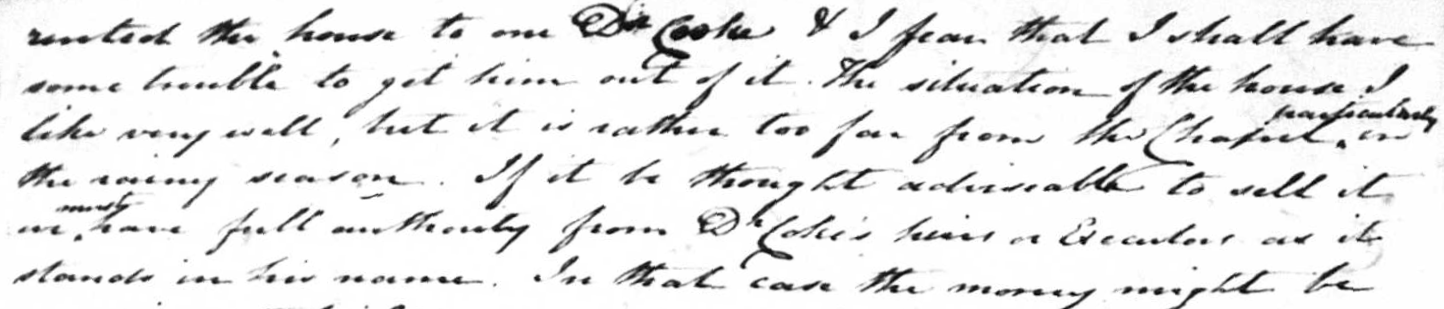 rented the house to one Dr Cooke & I fear that I shall have
some trouble to get him out of it. The situation of the house I
like very well, but it is rather too far from the Chapel, particularly in
the rainy season. If it be thought adviseable to sell it
we must have full authority from Dr Coke's heirs or Executors as it
stands in his name. In that case the money might be